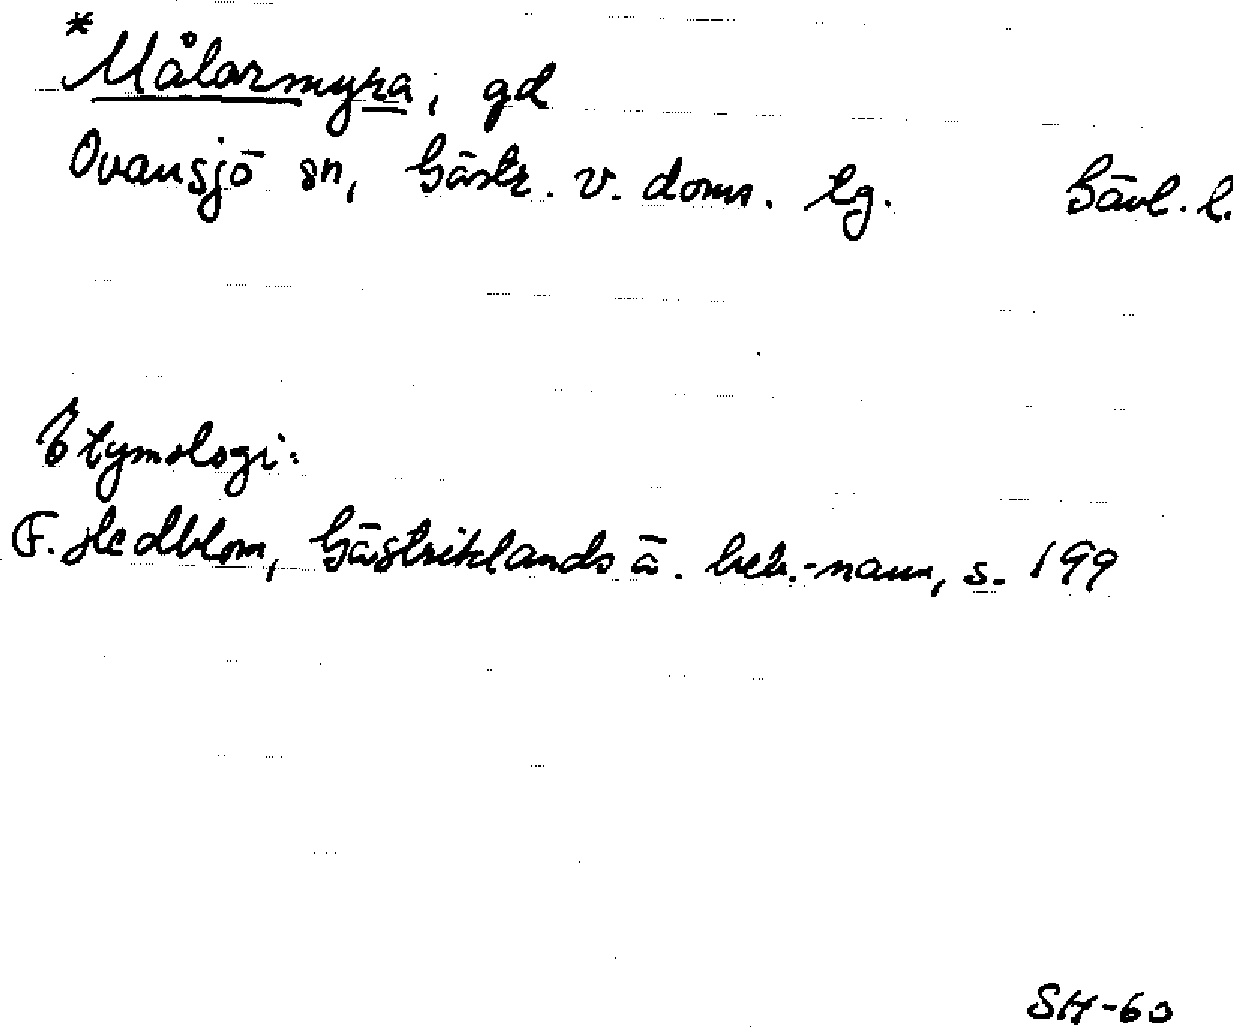 *Målarmyra, gd
Ovansjö sn, Gästr. v. doms. tg. Gävl. l.
Etymologi:
F. Hedblom, Gästriklands ä. beb.-namn, s. 199
SH-60